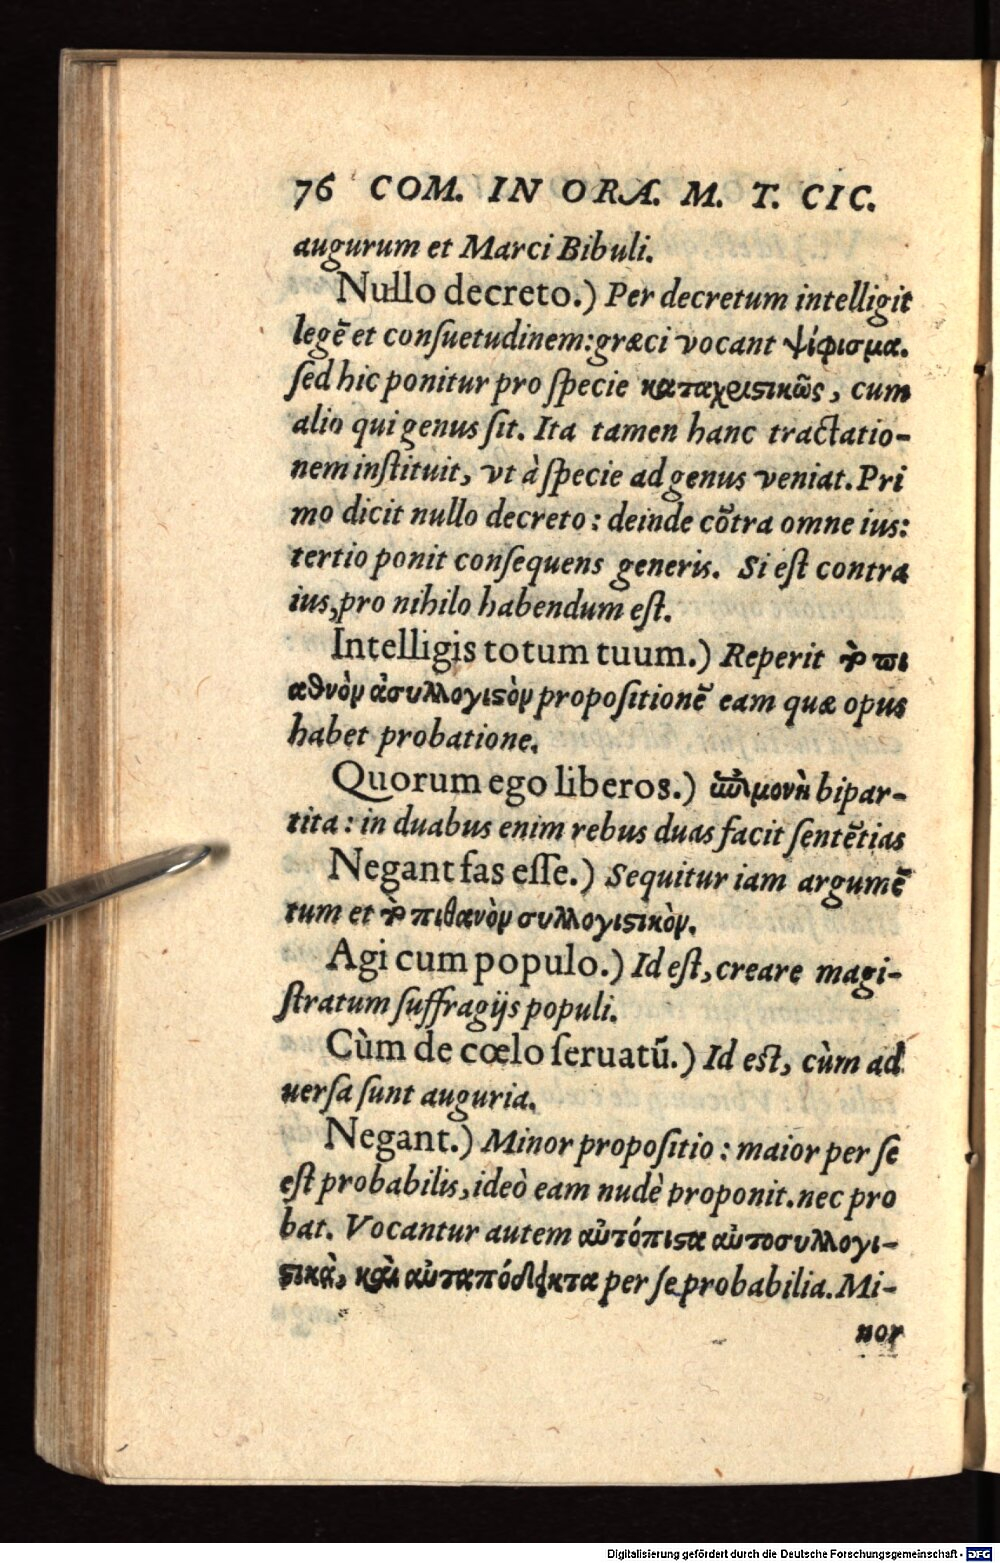 76 COM. IN ORA. M. T. CIC.
augurum et Marci Bibuli.
Nullo decreto.) Per decretum intelligit
legē et conſuetudinem: græci vocant ψίφισμα.
ſed hic ponitur pro ſpecie καταχρισικῶς, cum
alio qui genus ſit. Ita tamen hanc tractatio-
nem inſtituit, vt à ſpecie ad genus veniat. Pri
mo dicit nullo decreto: deinde cōtra omne ius:
tertio ponit conſequens generis. Si eſt contra
ius, pro nihilo habendum eſt.
Intelligis totum tuum.) Reperit τὸ πι
αθνὸν ἀσυλλογιϛὸν propoſitionē eam quæ opus
habet probatione.
Quorum ego liberos.) ἐπιμονὴ bipar-
tita: in duabus enim rebus duas facit ſentētias
Negant fas eſſe.) Sequitur iam argumē
tum et τὸ πιθανὸν συλλογιϛικὸν.
Agi cum populo.) Id eſt, creare magi-
ſtratum ſuffragijs populi.
Cùm de cœlo ſeruatū.) Id est, cùm ad
uerſa ſunt auguria.
Negant.) Minor propoſitio: maior per ſe
eſt probabilis, ideò eam nudè proponit. nec pro
bat. Vocantur autem αὐτόπιϛα αὐτοσυλλογι-
ϛικὰ, καὶ αὐταπόδεικτα per ſe probabilia. Mi-
nor
Digitalisierung gefördert durch die Deutsche Forschungsgemeinschaft - DFG